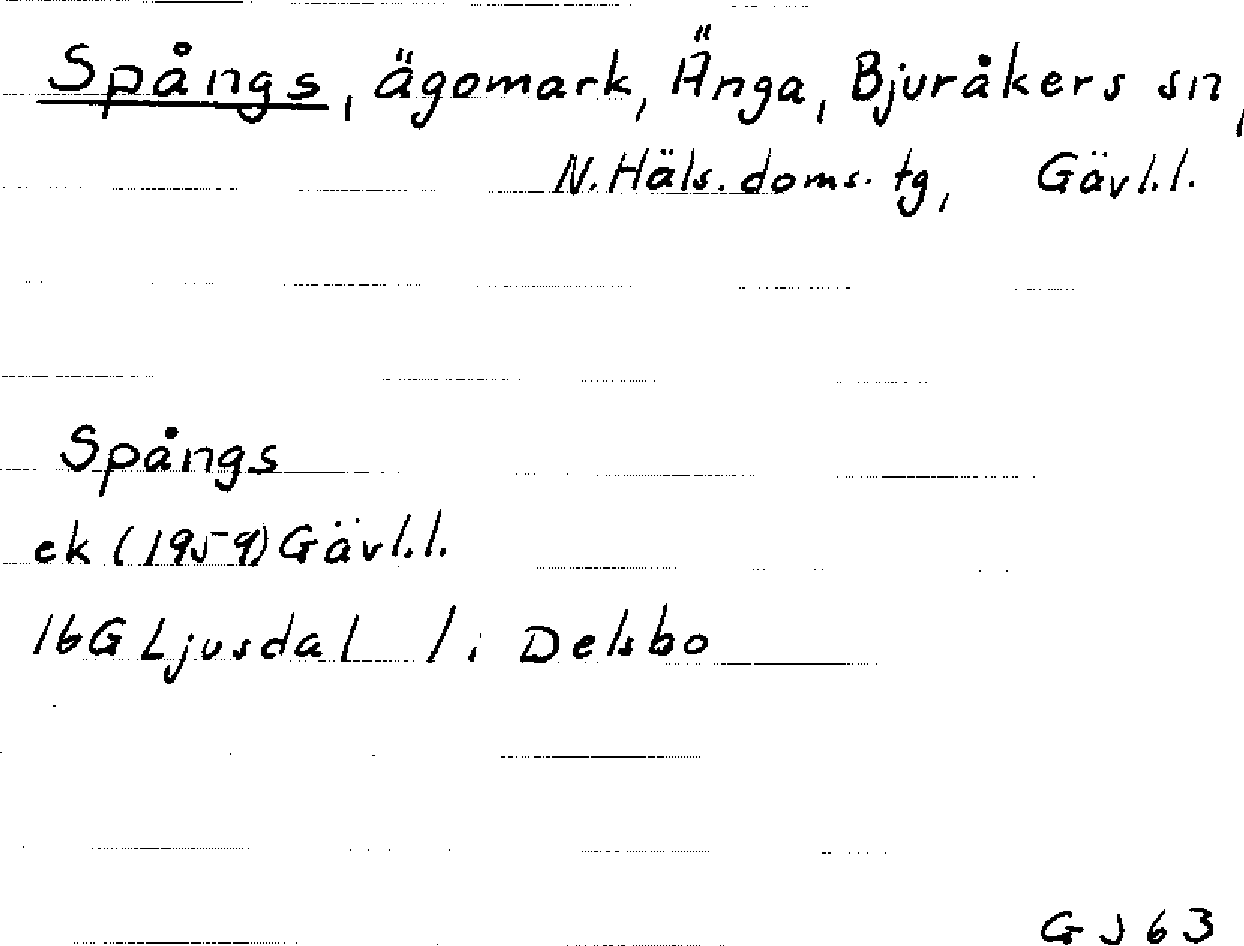 Spångs, ägomark, Änga, Bjuråkers sn,
N. Häls. doms. tg, Gävl.l.
Spångs
ek (1959) Gävl.l.
16G Ljusdal /: Delsbo
GJ63